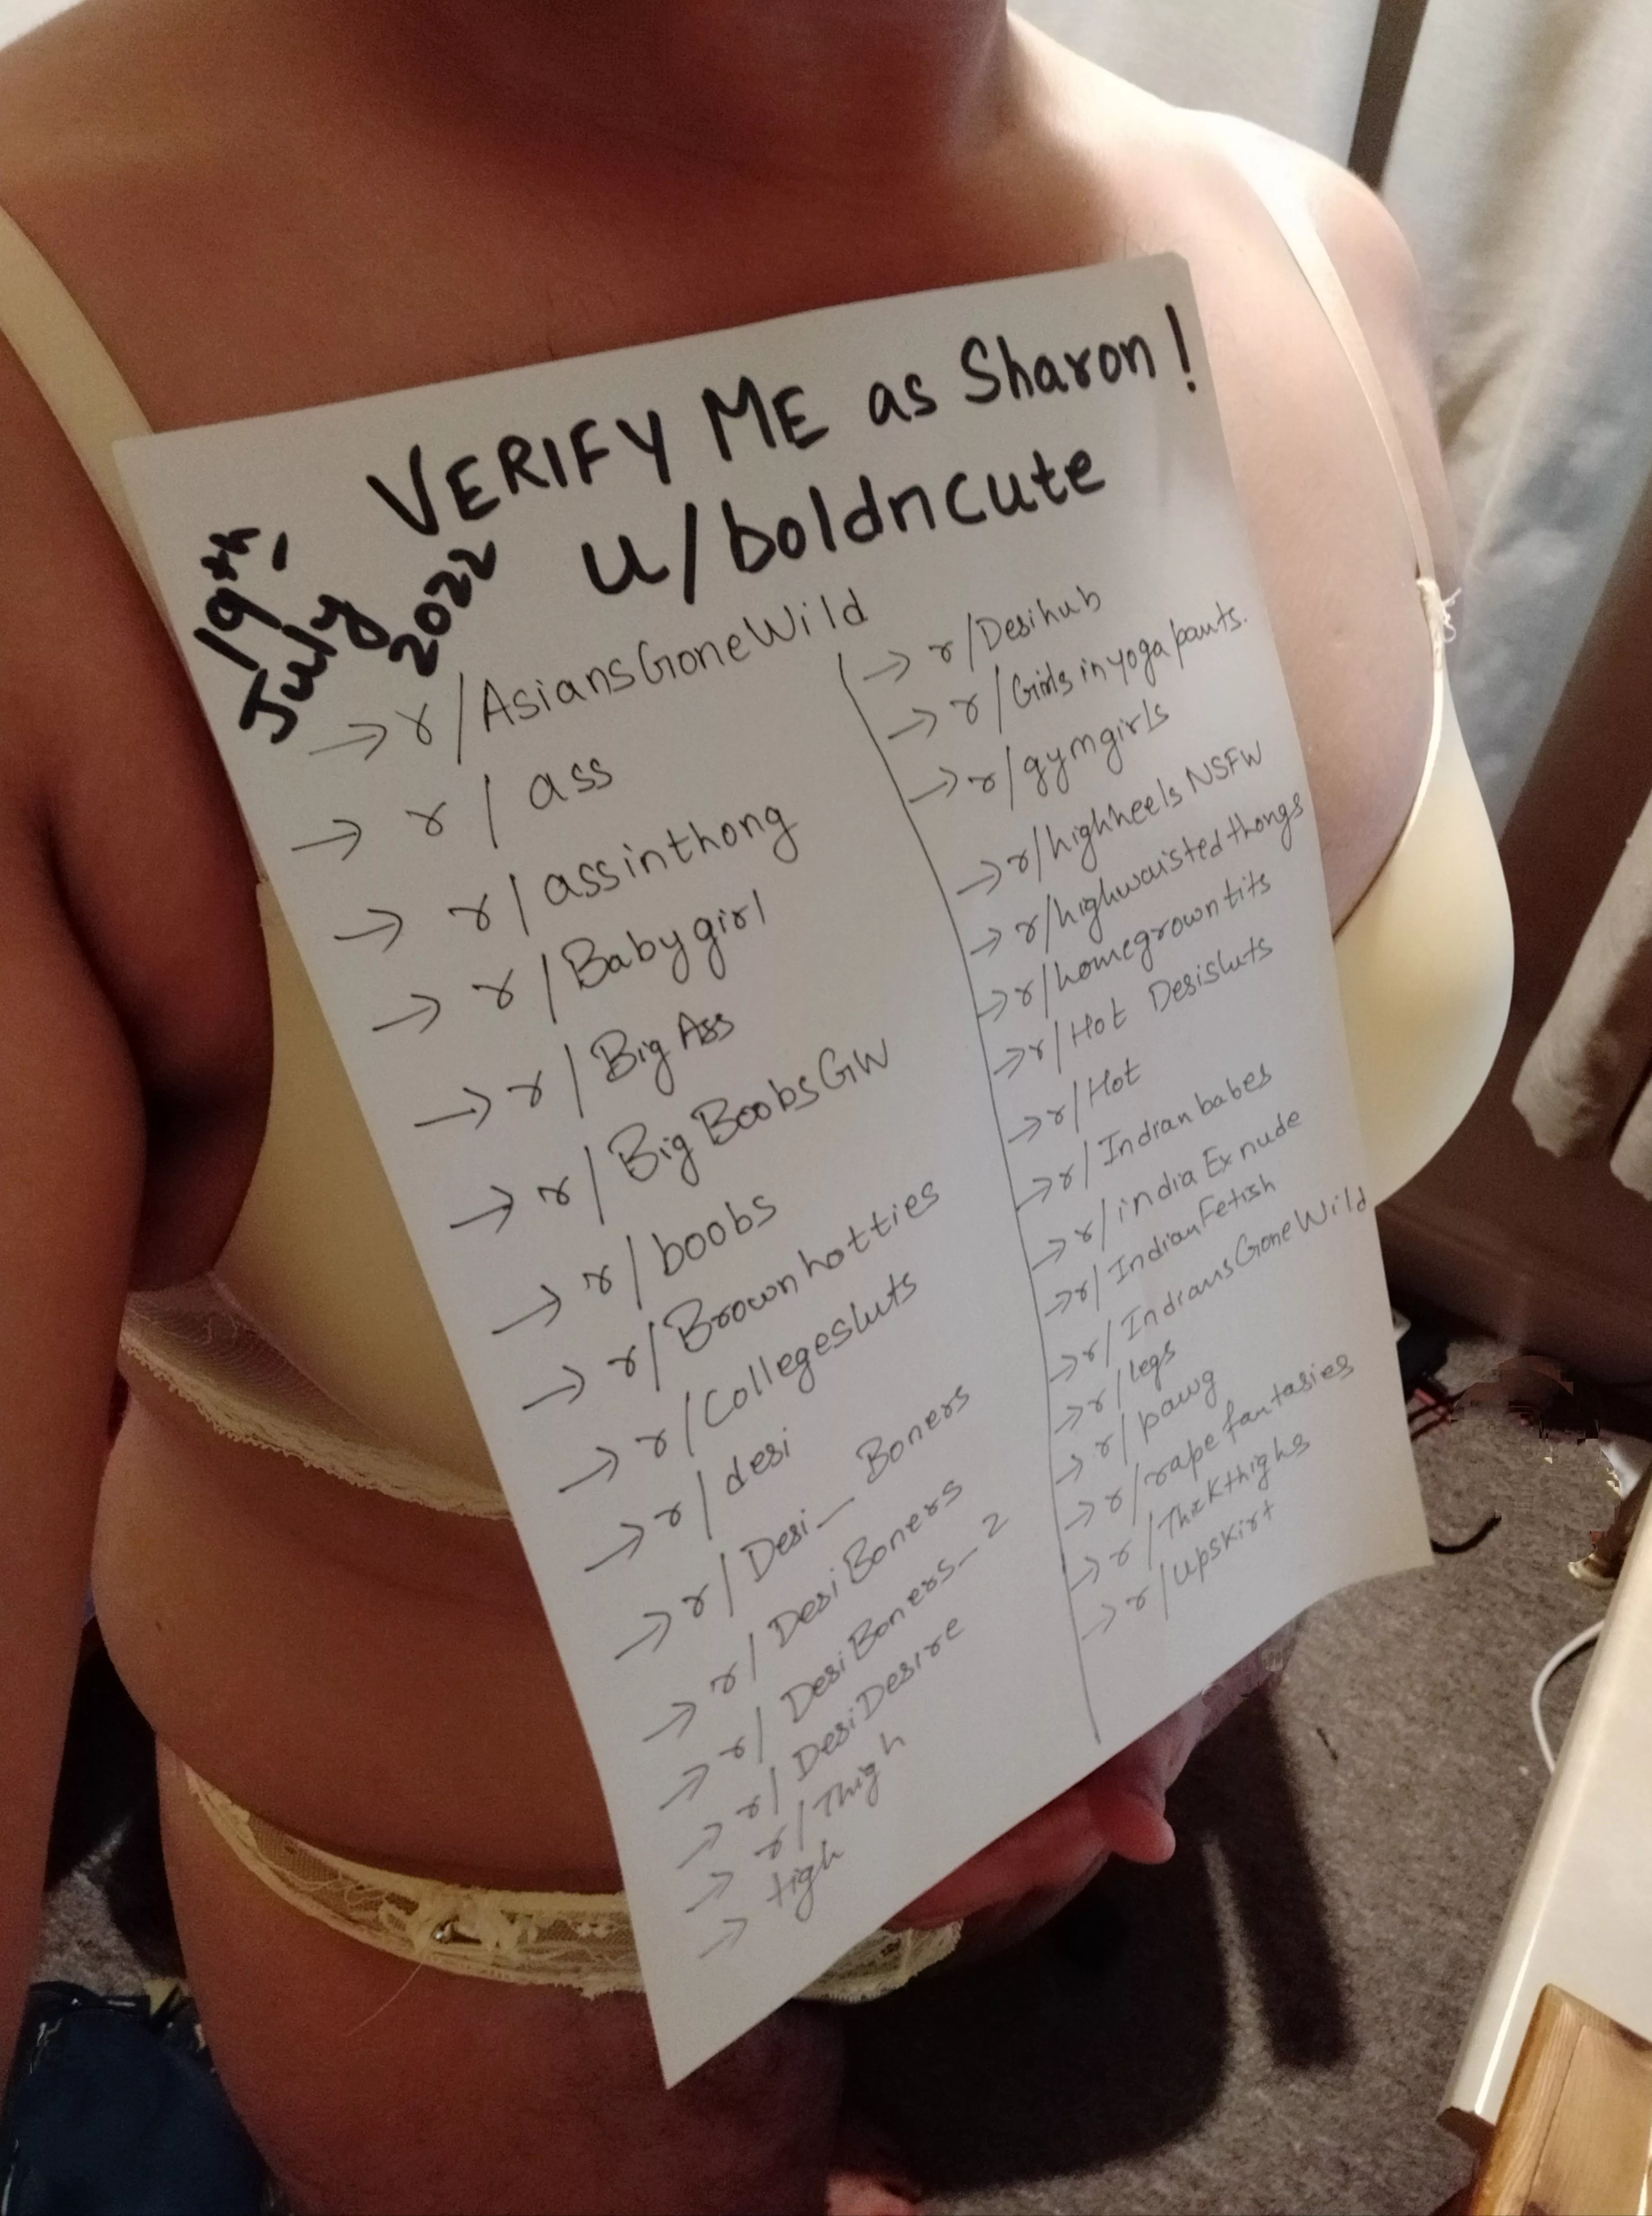 VERIFY ME as Sharon!
u/boldncute
19th,
July
2022
→ r/AsiansGoneWild
→ r/ass
→ r/assinthong
→ r/Babygirl
→ r/Big Ass
→ r/Big BoobsGW
→ r/boobs
→ r/Brownhotties
→ r/Collegesluts
→ r/desi
→ r/Desi_Boners
→ r/DesiBoners
→ r/DesiBoners_2
→ r/DesiDesire
→ r/Thigh
→ tigh
→ r/Desihub
→ r/Girls in yoga pants.
→ r/gymgirls
→ r/highheels NSFW
→ r/highwaistedthongs
→ r/homegrowntits
→ r/Hot Desisluts
→ r/Hot
→ r/Indian babes
→ r/india Ex nude
→ r/IndianFetish
→ r/IndiansGoneWild
→ r/legs
→ r/pawg
→ r/rape fantasies
→ r/Thickthighs
→ r/upskirt